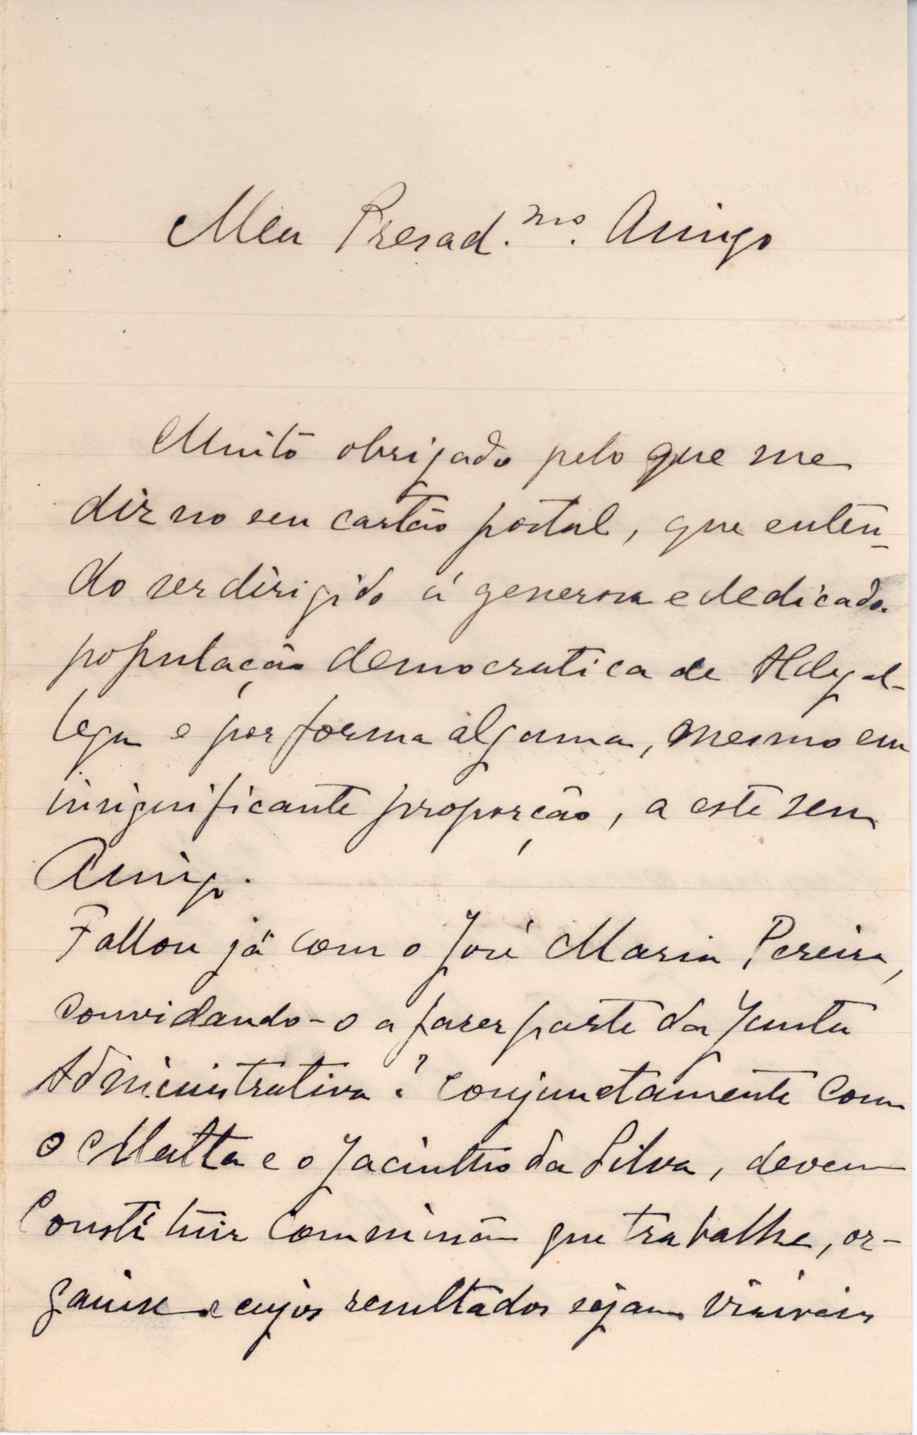 Meu Presad.mo. Amigo
Muito obrigado pelo que me
diz no seu cartão postal, que enten-
do ser dirigido á generosa e dedicada
população democratica de Aldegal-
lega e por forma alguma, mesmo em
insignificante proporção, a este seu
Amigo.
Fallou já com o José Maria Pereira,
convidando-o a fazer parte da Junta
Administrativa? Conjunctamente com
o Matta e o Jacintho da Silva, devem
Constituir commissão que trabalhe, or-
ganise e cujos resultados sejam visiveis